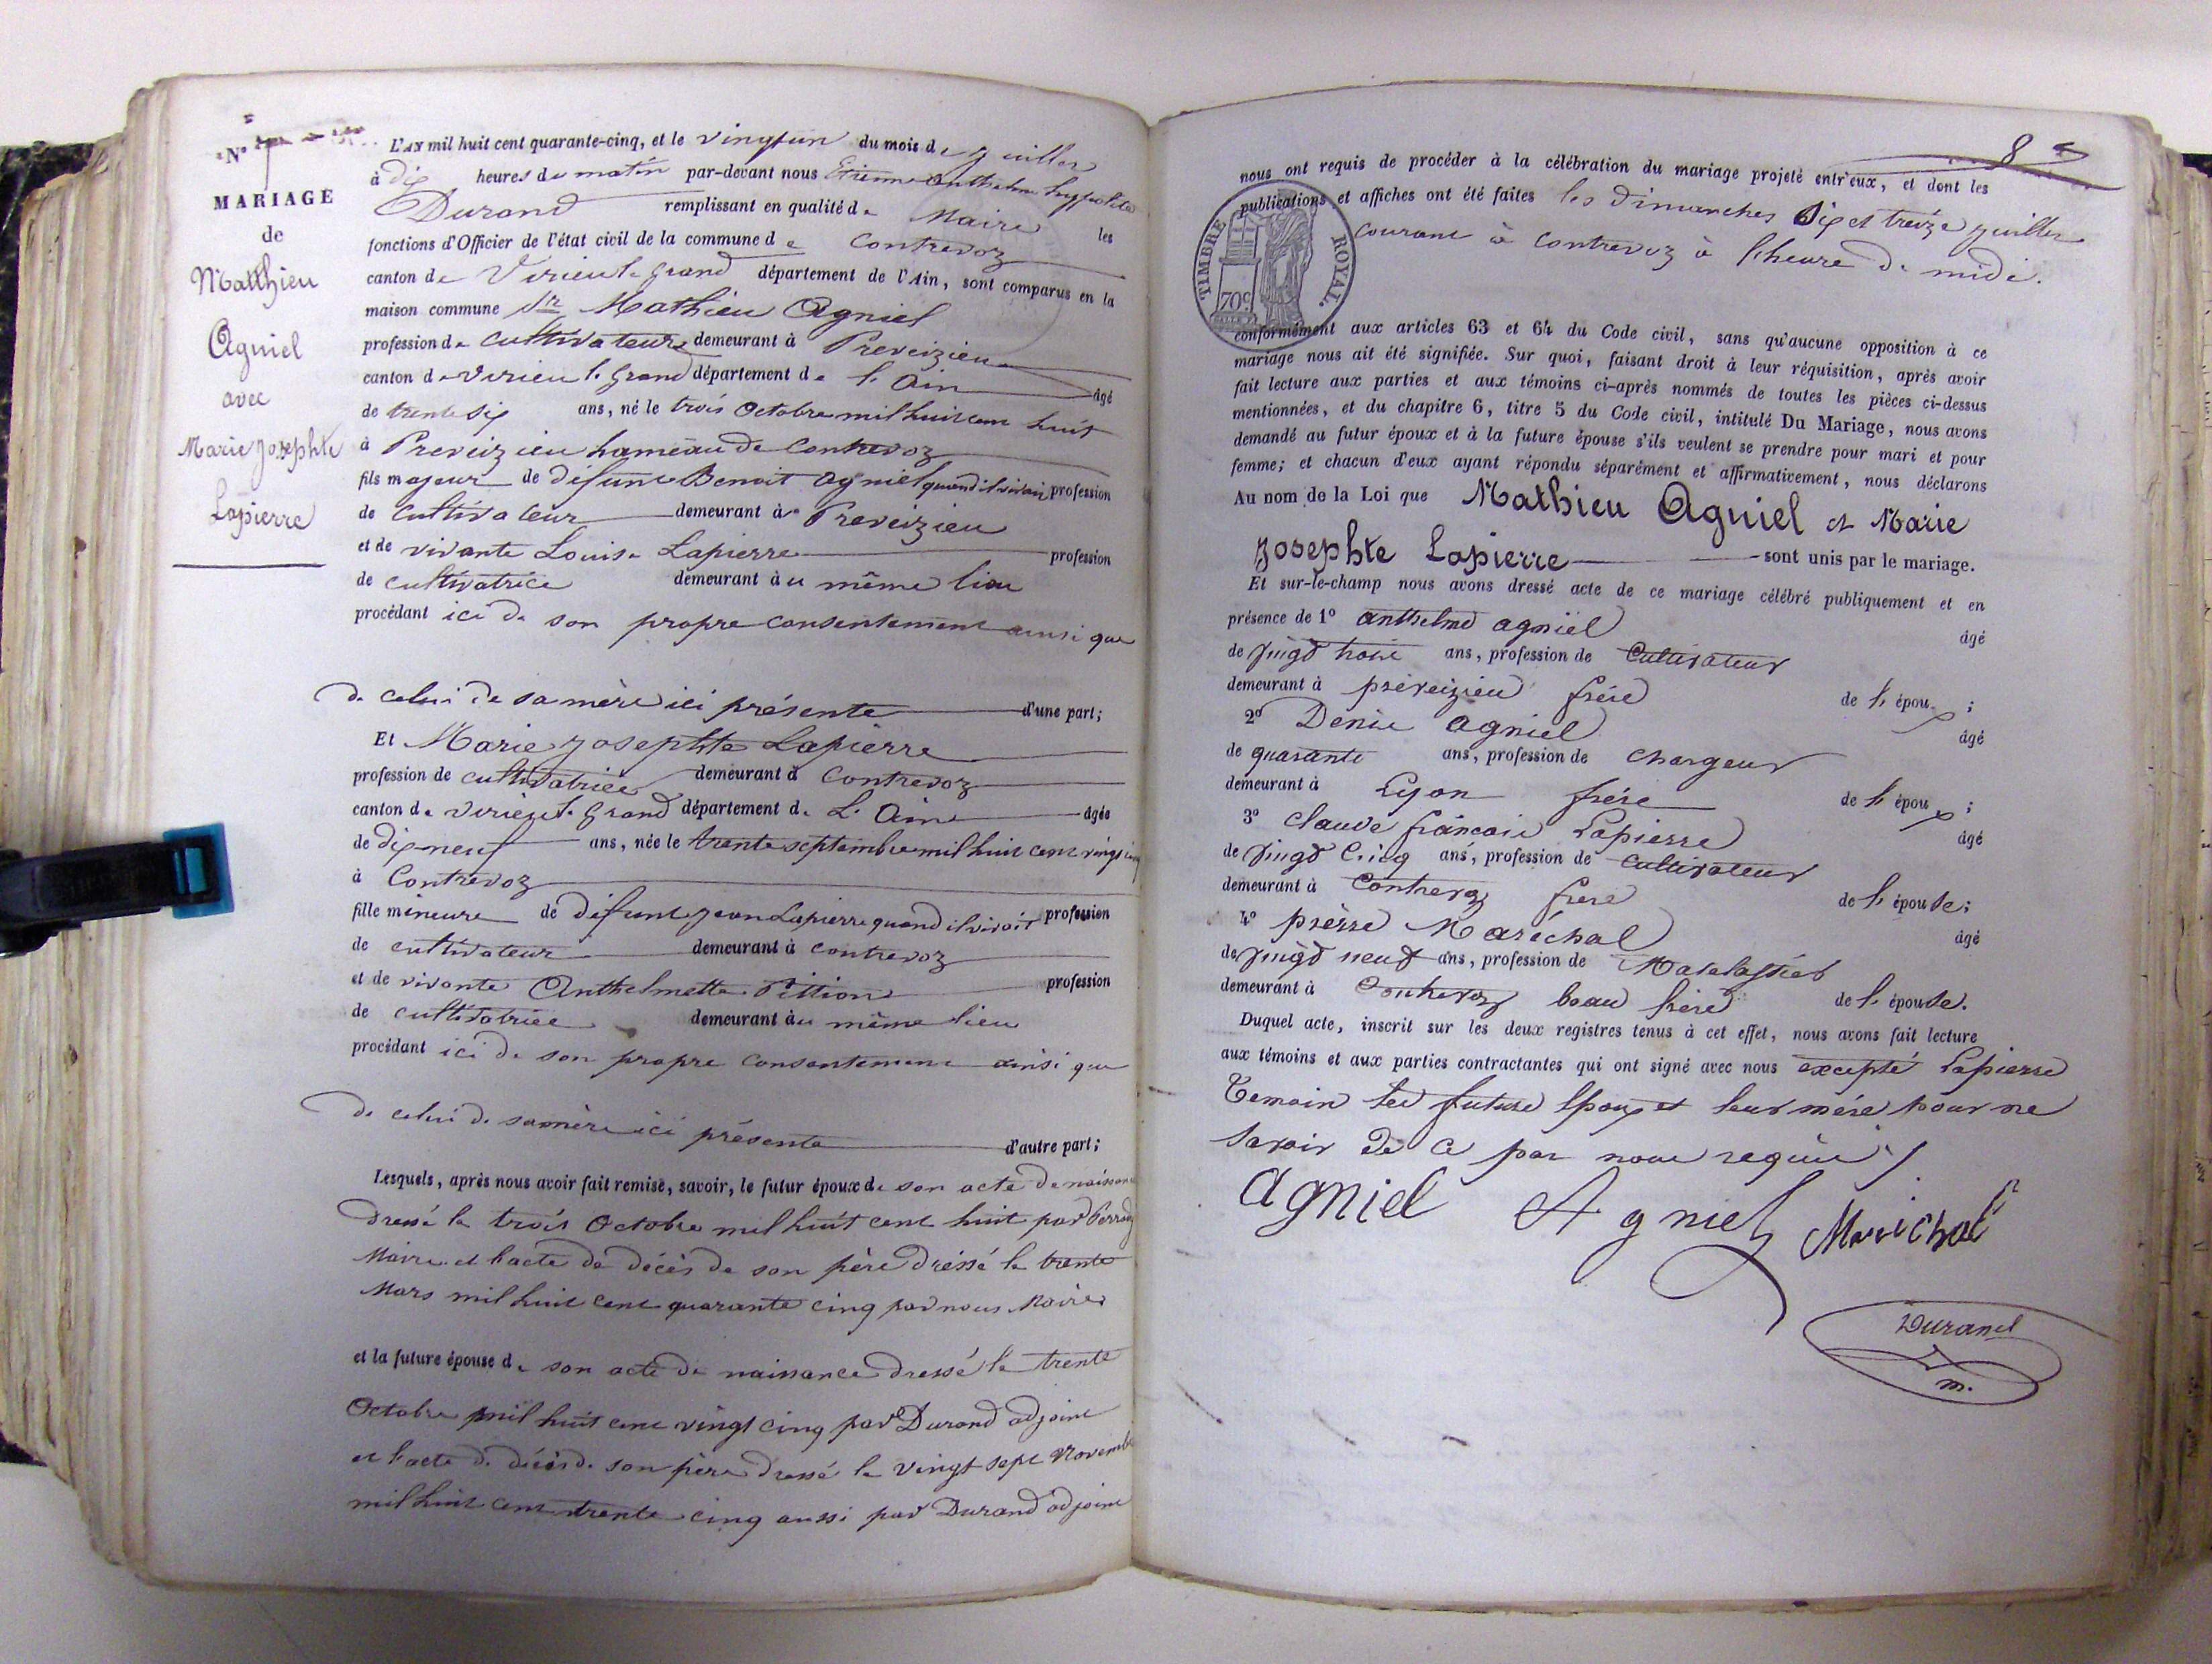 N°
MARIAGE
de
Matthieu
Agniel
avec
Marie Josephte
Lapierre
L'AN mil huit cent quarante-cinq, et le vingt un du mois de juillet
à dix heures du matin par-devant nous Etienne Anthelme hyppolite
Durand remplissant en qualité de Maire les
fonctions d'Officier de l'état civil de la commune de Contrevoz
canton de Virieu le grand département de l'Ain, sont comparus en la
maison commune Sr Mathieu Agniel
profession de cultivateur demeurant à Preveizieu
canton de Virieu le grand département de l'Ain âgé
de trente six ans, né le trois Octobre mil huit cent huit
à Preveizieu hameau de Contrevoz
fils majeur de défunt Benoit Agniel quand il vivait profession
de cultivateur demeurant à Preveizieu
et de vivante Louise Lapierre profession
de cultivatrice demeurant au même lieu
procédant ici de son propre consentement ainsi que
de celui de sa mère ici présente d'une part;
Et Marie Josephte Lapierre
profession de cultivatrice demeurant à Contrevoz
canton de Virieu le Grand département de L'Ain âgée
de dix neuf ans, née le trente septembre mil huit cent vingt cinq
à Contrevoz
fille mineure de défunt Jean Lapierre quand il vivoit profession
de cultivateur demeurant à Contrevoz
et de vivante Anthelmette Pittion profession
de cultivatrice demeurant au même lieu
procédant ici de son propre consentement ainsi que
de celui de sa mère ici présente d'autre part;
Lesquels, après nous avoir fait remise, savoir, le futur époux de son acte de naissance
dressé le trois Octobre mil huit cent huit par
Maire et l'acte de décès de son père dréssé le trente
Mars mil huit cent quarante cinq par nous Maire
et la future épouse de son acte de naissance dressé le trente
Octobre mil huit cent vingt cinq par Durand adjoint
et l'acte de décès de son père dressé le vingt sept Novembre
mil huit cent trente cinq aussi par Durand adjoint
8
nous ont requis de procéder à la célébration du mariage projeté entr'eux, et dont les
publications et affiches ont été faites les dimanches Six et treize juillet
courant à Contrevoz à l'heure de midi.
TIMBRE ROYAL.
70c
conformément aux articles 63 et 64 du Code civil, sans qu'aucune opposition à ce
mariage nous ait été signifiée. Sur quoi, faisant droit à leur réquisition, après avoir
fait lecture aux parties et aux témoins ci-après nommés de toutes les pièces ci-dessus
mentionnées, et du chapitre 6, titre 5 du Code civil, intitulé Du Mariage, nous avons
demandé au futur époux et à la future épouse s'ils veulent se prendre pour mari et pour
femme; et chacun d'eux ayant répondu séparément et affirmativement, nous déclarons
Au nom de la Loi que Mathieu Agniel et Marie
Josephte Lapierre sont unis par le mariage.
Et sur-le-champ nous avons dressé acte de ce mariage célébré publiquement et en
présence de 1° Anthelme agniel âgé
de vingt trois ans, profession de Cultivateur
demeurant à préveizieu frére de l'époux;
2° Denis agniel âgé
de quarante ans, profession de chargeur
demeurant à Lyon frére de l'époux;
3° Claude françois Lapierre âgé
de vingt Cinq ans, profession de Cultivateur
demeurant à Contrevoz frere de l'épouse;
4° pierre Maréchal âgé
de vingt neuf ans, profession de Matelassier
demeurant à Contrevoz beau frere de l'épouse.
Duquel acte, inscrit sur les deux registres tenus à cet effet, nous avons fait lecture
aux témoins et aux parties contractantes qui ont signé avec nous excepté Lapierre
Temoin les futurs Epoux et leur mére pour ne
savoir de ce par nous requis
agniel Agniel Marichal
Durand
m.